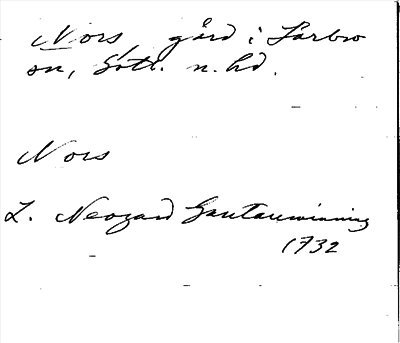 Nors, gård i Lärbro
sn, Gotl. n. hd.
Nors
L. Neogard Gautauminning
1732